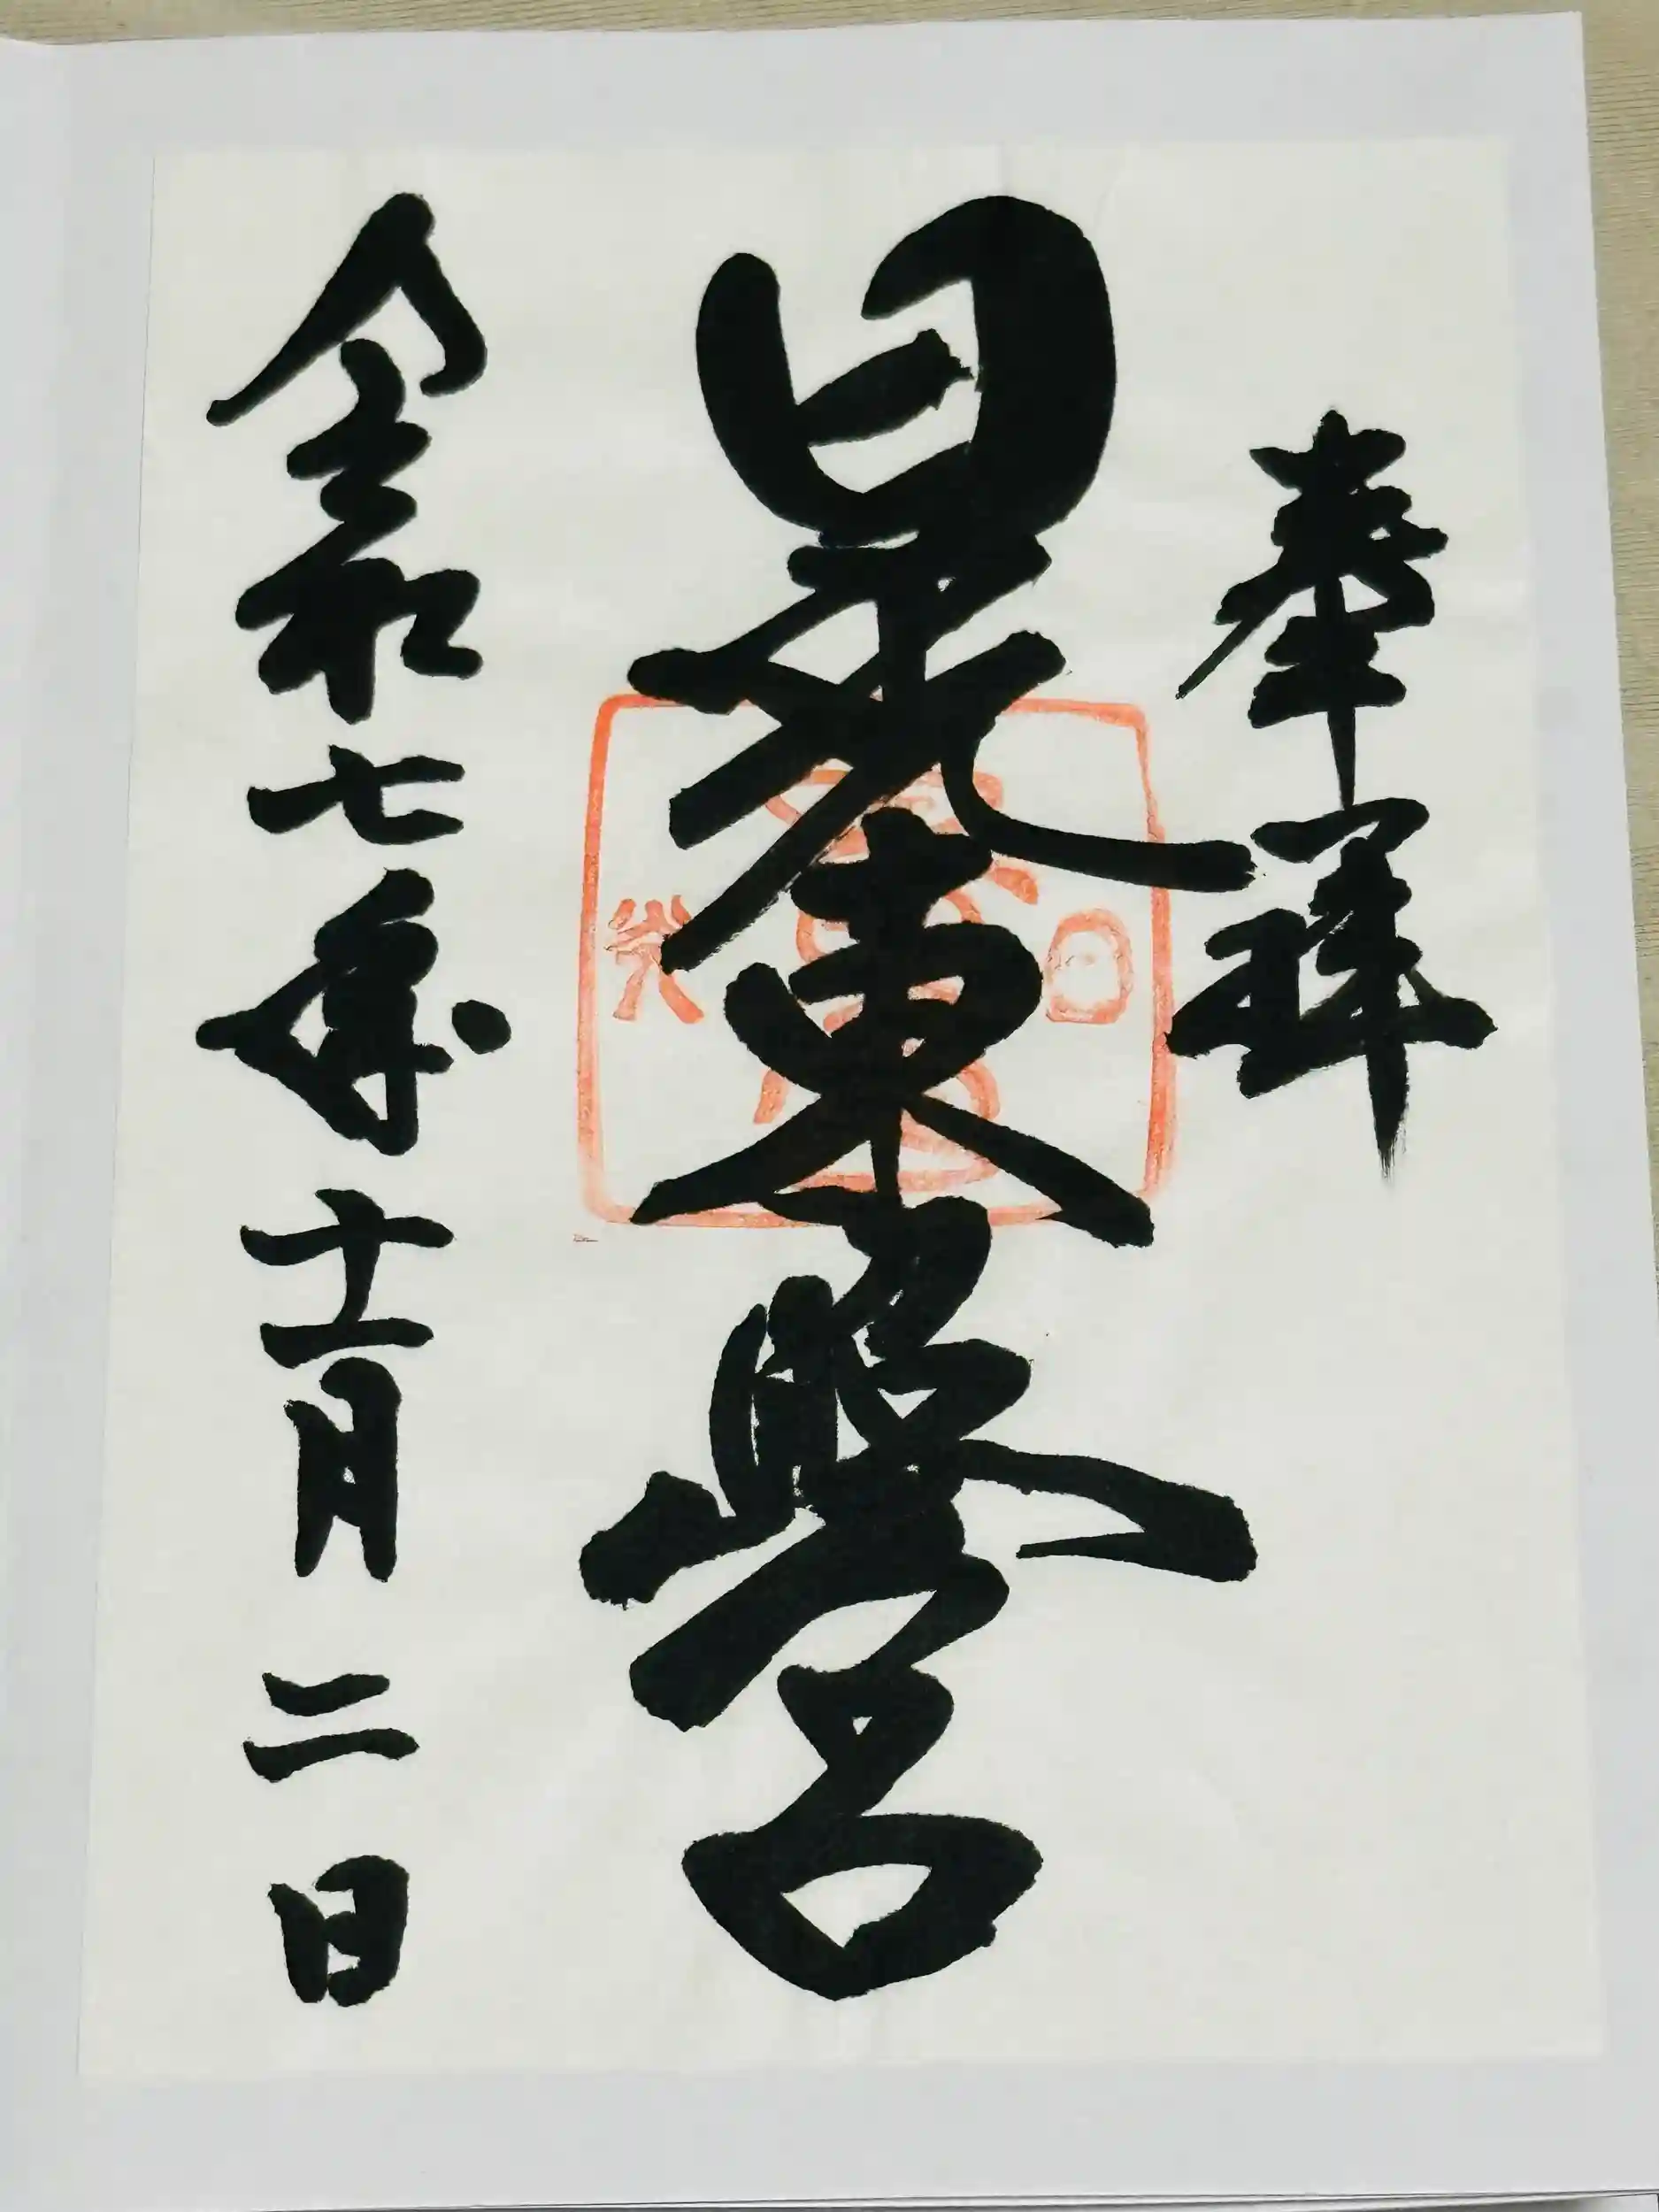 奉拝
日光東照宮
令和七年十一月二日
日
光